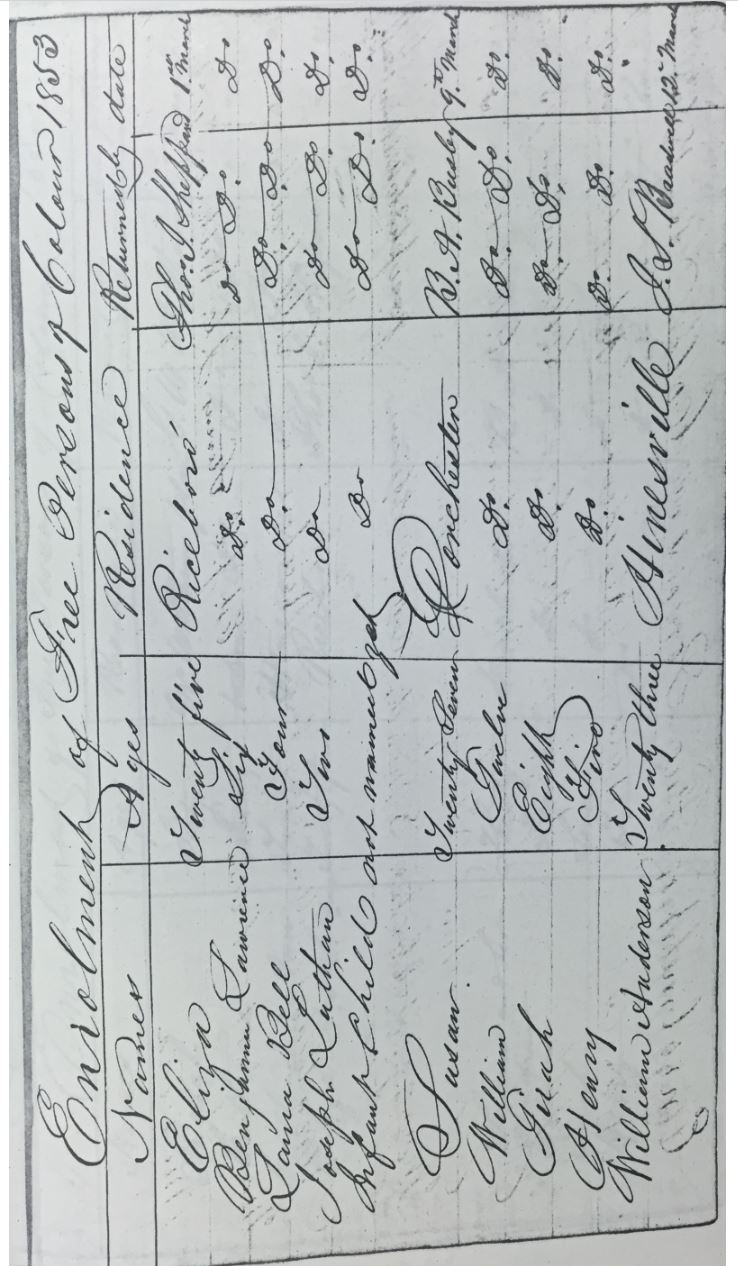 Enrolment of Free Persons of Colour 1853
Names Ages Residence Returned by date
Eliza Twenty five Riceboro' Thos. J. Sheppard 1st March
Benjamin Lawrence Six Do. Do Do. Do
Bell Four Do. Do. Do Do.
Joseph Two Do Do Do. Do.
Infant Child not named yet Do Do Do. Do.
Susan. Twenty Seven Dorchester B. A. Busby 9th March
William Twelve Do. Do. Do. Do.
Eight Do. Do. Do. Do.
Henry Five Do. Do. Do. Do.
William Anderson Twenty three Hinesville 12th March